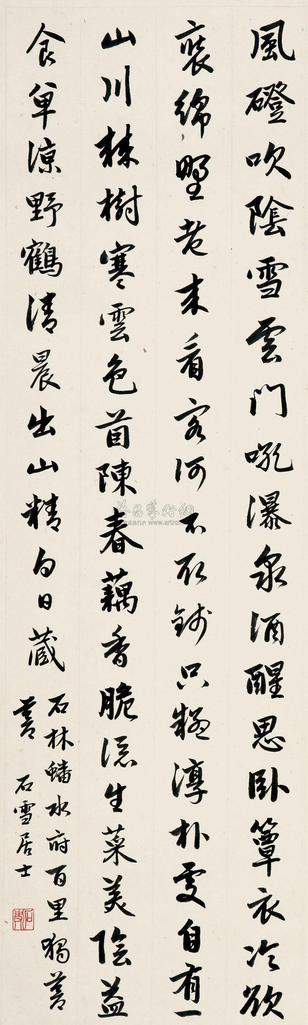 風磴吹陰雪雲門吼瀑泉酒醒思臥簟衣冷欲
裝綿野老来看客河不取錢只疑淳朴處自有一
山川棘樹寒雲色茵陳春藕香脆添生菜美陰益
食單涼野鶴清晨出山精白日藏
石林蟠水府百里獨蒼
蒼
石雪居士